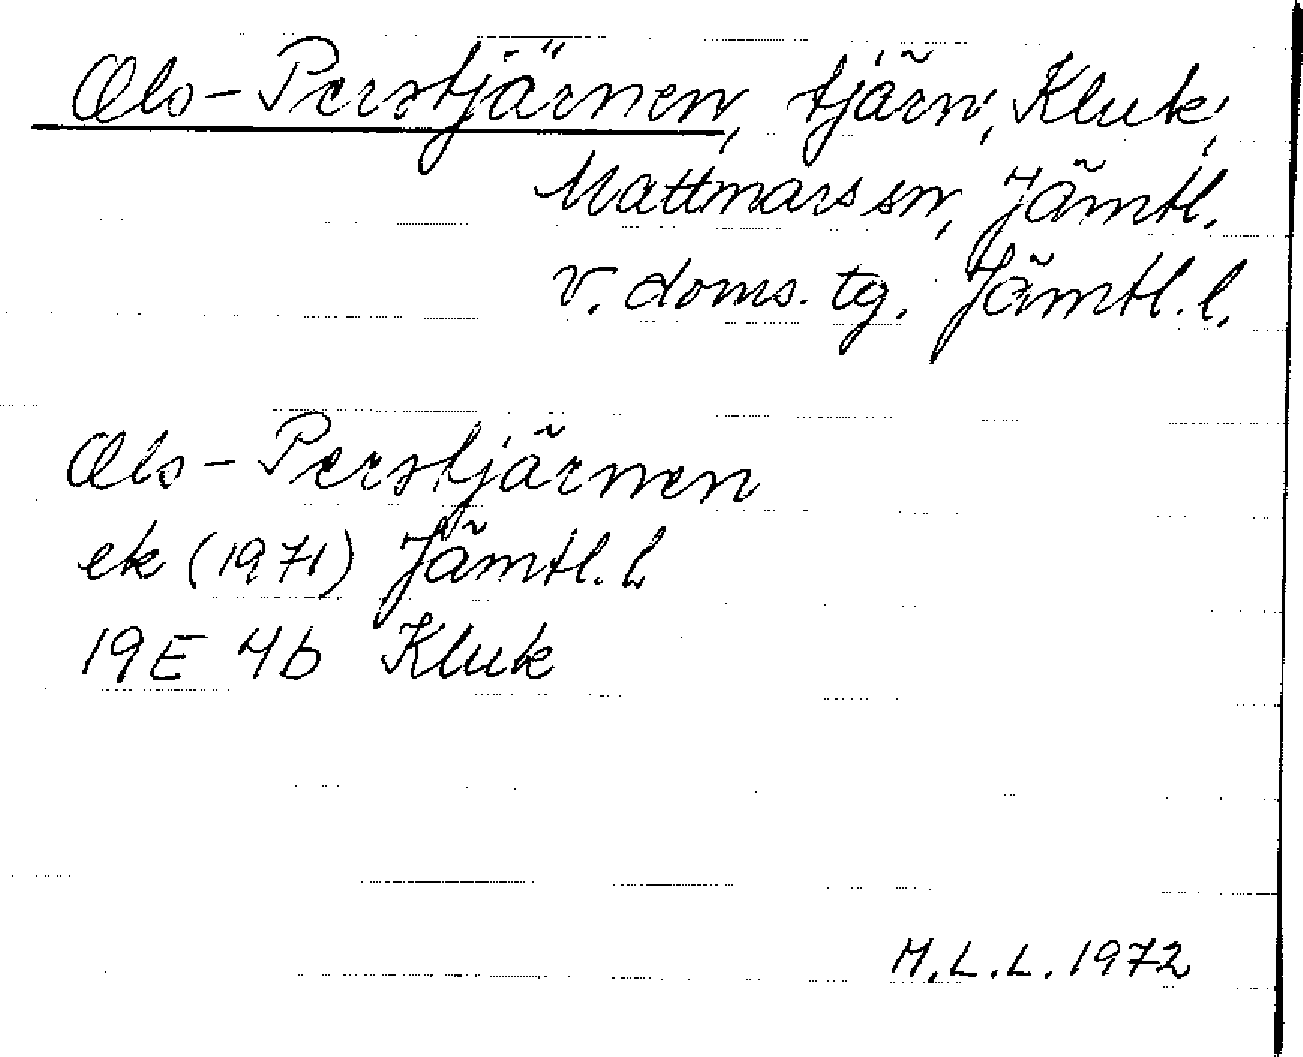 Ols-Perstjärnen, tjärn, Kluk,
Mattmars sn, Jämtl.
v. doms. tg. Jämtl. l.
Ols-Perstjärnen
ek (1971) Jämtl. l.
19E 4b Kluk
M.L.L. 1972